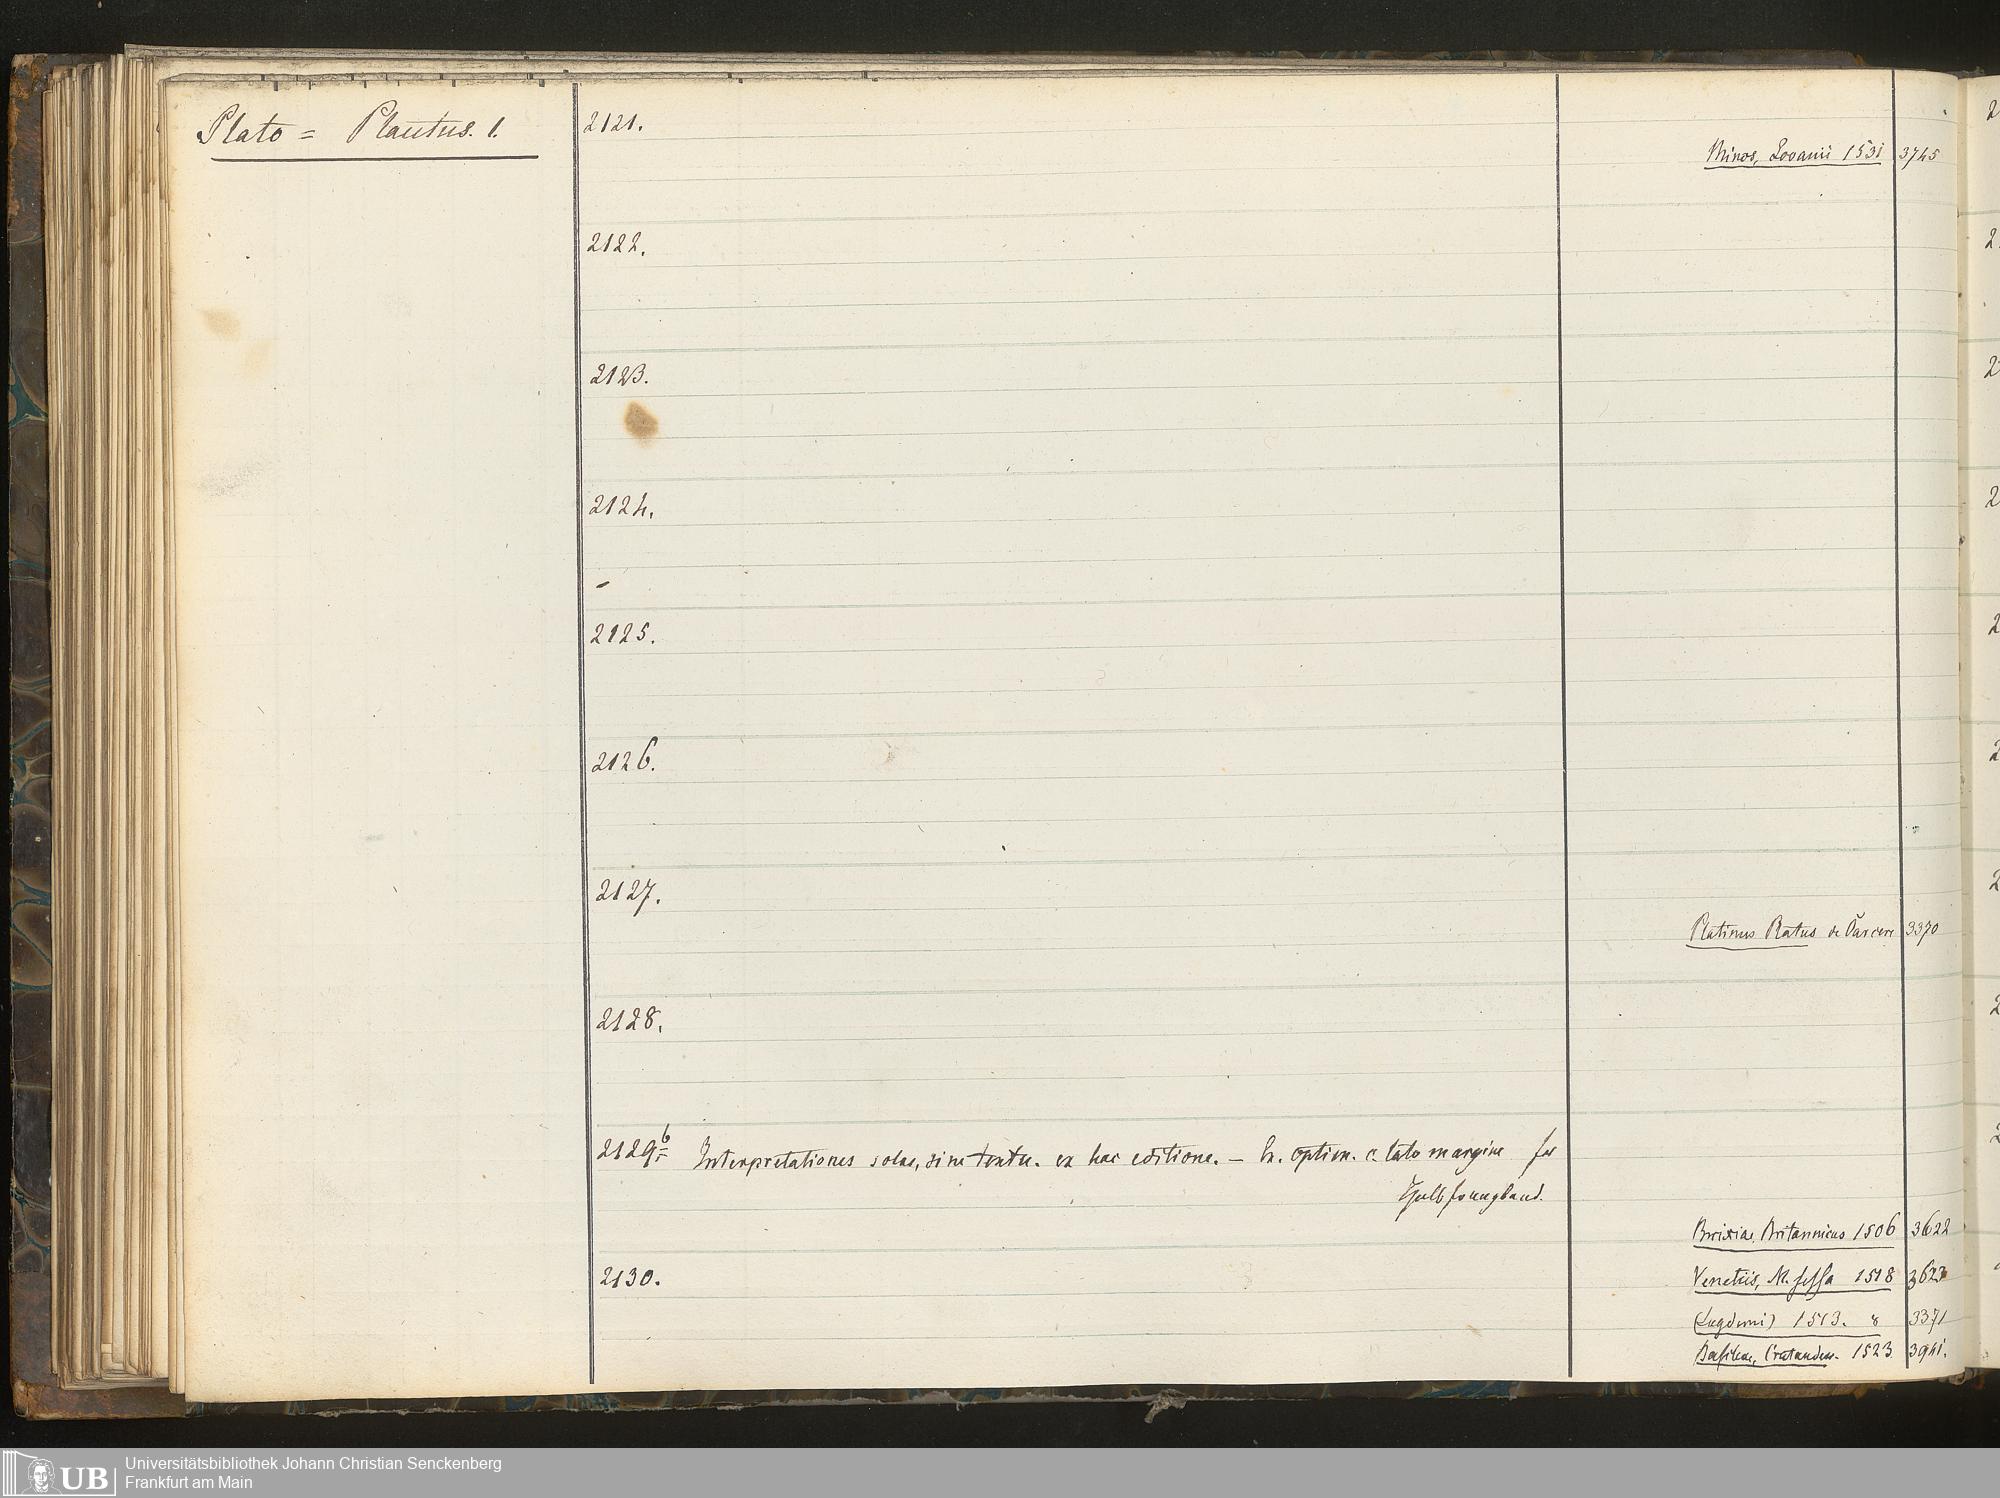 Plato = Plautus. 1.
2121.
Minos, Lovanii 1531 3745
2122.
2123.
2124.
2125.
2126.
2127.
Platinus Platus de Carcere 3370
2128.
2129b Interpretationes solae, sine textu. ex hac editione. — Ex. optim. c. lato margine
Halbfrungband.
Brixiae, Britannicus 1506 3622
2130.
Venetiis, M. Sessa 1518 3623
(Lugduni) 1513. 8 3371
Basileae, Cratander. 1523 3941.
UB
Universitätsbibliothek Johann Christian Senckenberg
Frankfurt am Main